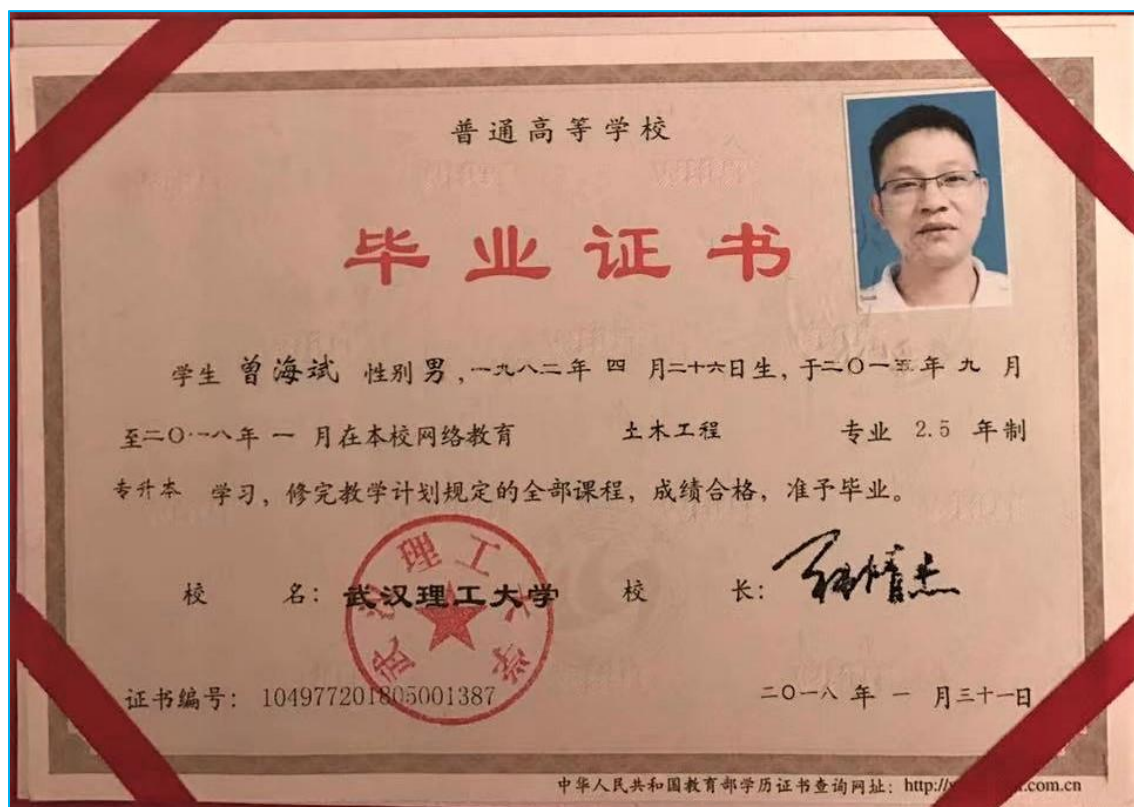 普通高等学校
毕业证书
学生 曾海斌 性别 男,一九八二年 四 月二十六日生,于二〇一五年 九 月
至二〇一八年 一 月在本校网络教育 土木工程 专业 2.5 年制
专升本 学习,修完教学计划规定的全部课程,成绩合格,准予毕业。
校 名:武汉理工大学 校 长:
武汉理工大学
证书编号:104977201805001387 二〇一八 年 一 月三十一日
中华人民共和国教育部学历证书查询网址:http:// .com.cn